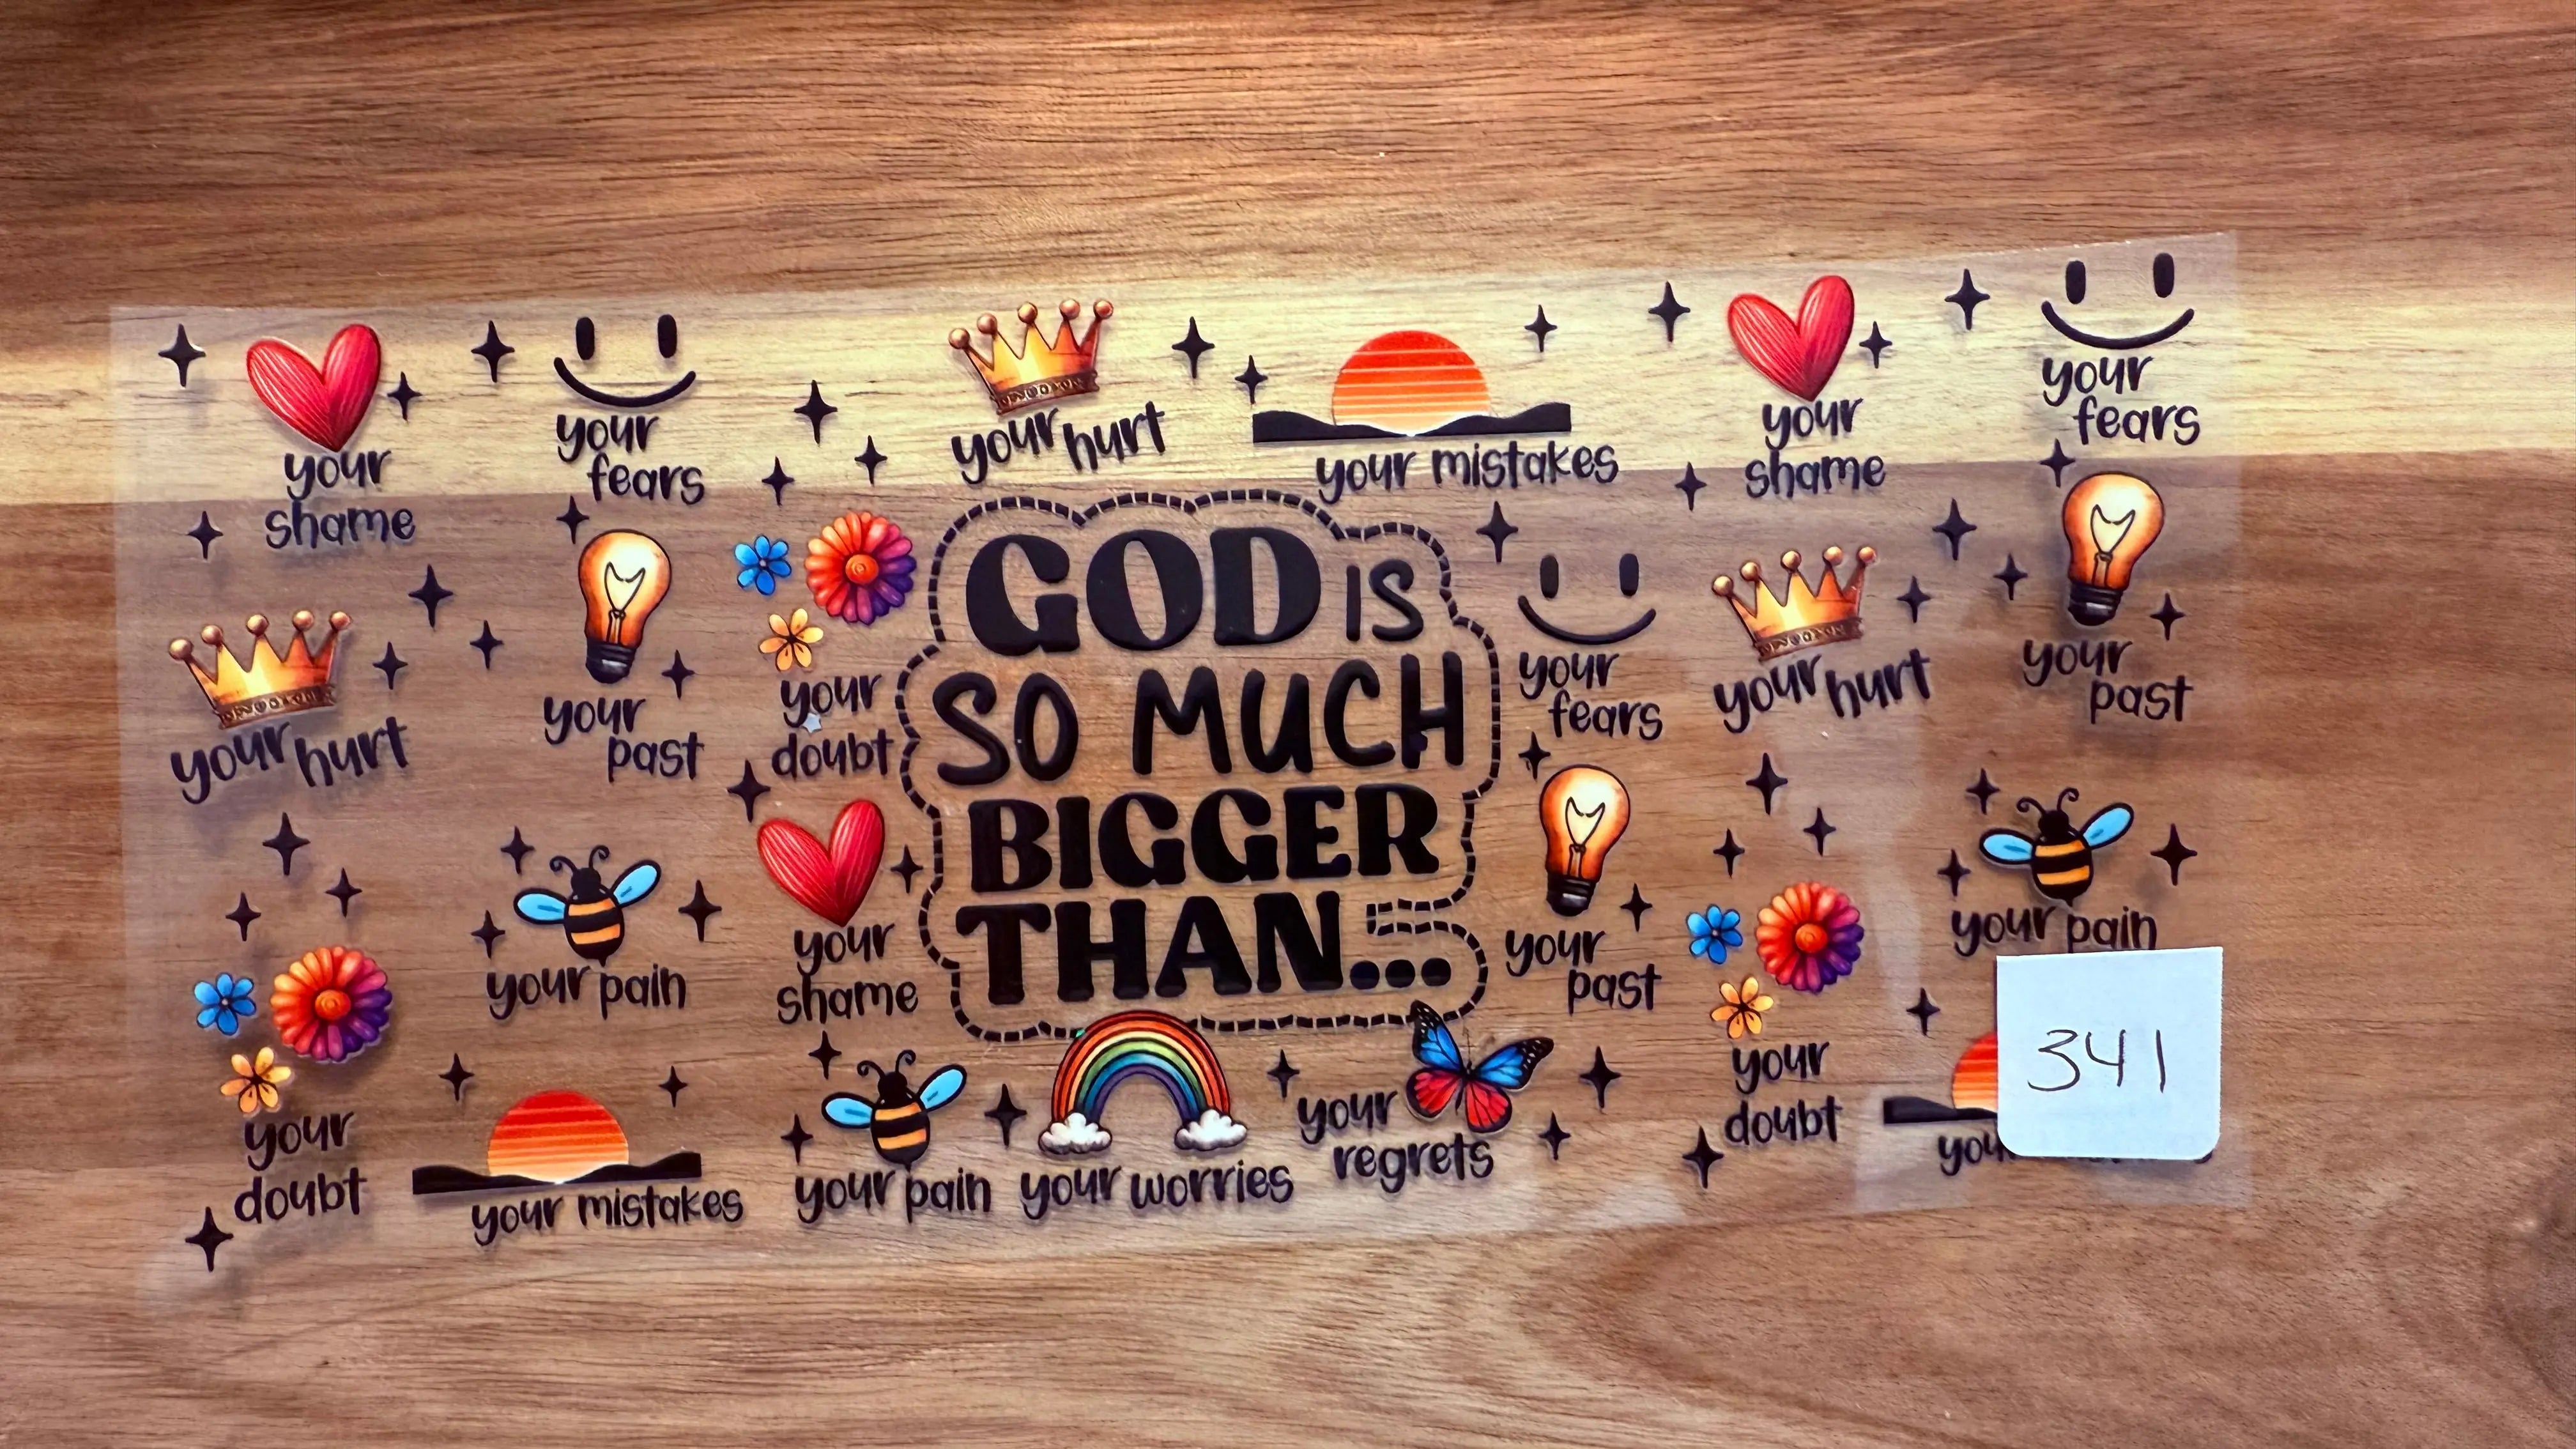 your
shame
your
fears
your hurt
your mistakes
your
shame
your
fears
your hurt
your
past
your
doubt
GOD IS
SO MUCH
BIGGER
THAN...
your
fears
your hurt
your
past
your
doubt
your pain
your
shame
your
past
your
doubt
your pain
341
your mistakes
your pain
your worries
your
regrets